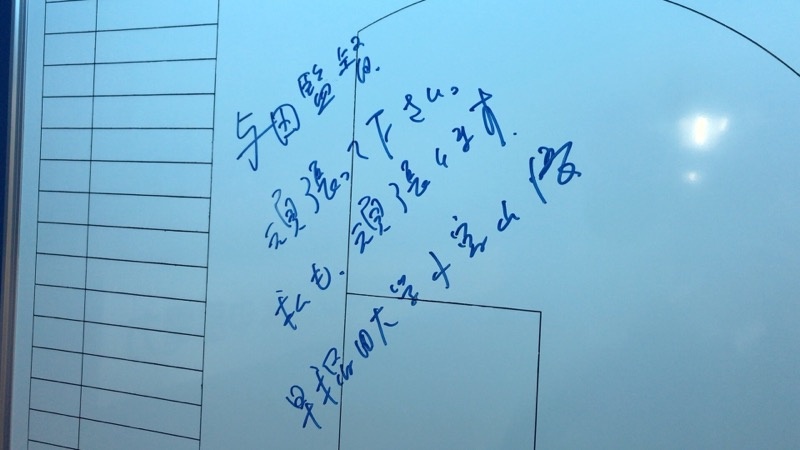 与田監督
頑張って下さい。
私も、頑張ります。
早稲田大学